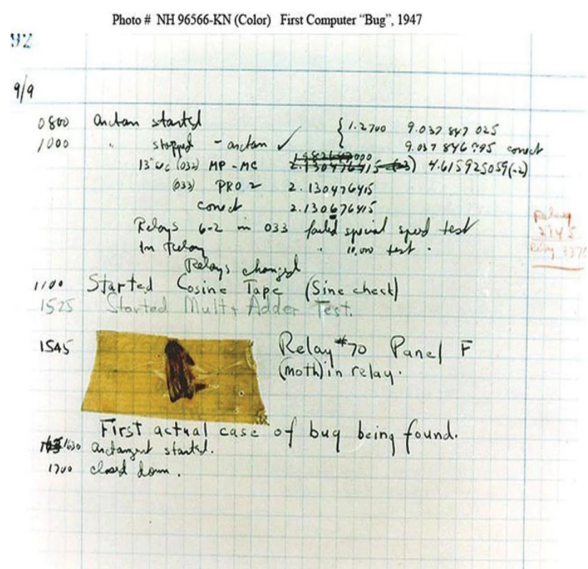 Photo # NH 96566-KN (Color) First Computer "Bug", 1947
92
9/9
0800 Antan started
1000 " stopped - antan ✓ { 1.2700 9.037 847 025
9.037 846 995 correct
13"uc (032) MP - MC 2.130476415 (-3) 4.615925059(-2)
(033) PRO 2 2.130476415
correct 2.130676415
Relays 6-2 in 033 failed special speed test
In Relay " 10,000 test.
Relays changed
Relay
3370
1100 Started Cosine Tape (Sine check)
1525 Started Mult + Adder Test.
1545 Relay #70 Panel F
(moth) in relay.
First actual case of bug being found.
1630 antangent started.
1700 closed down.